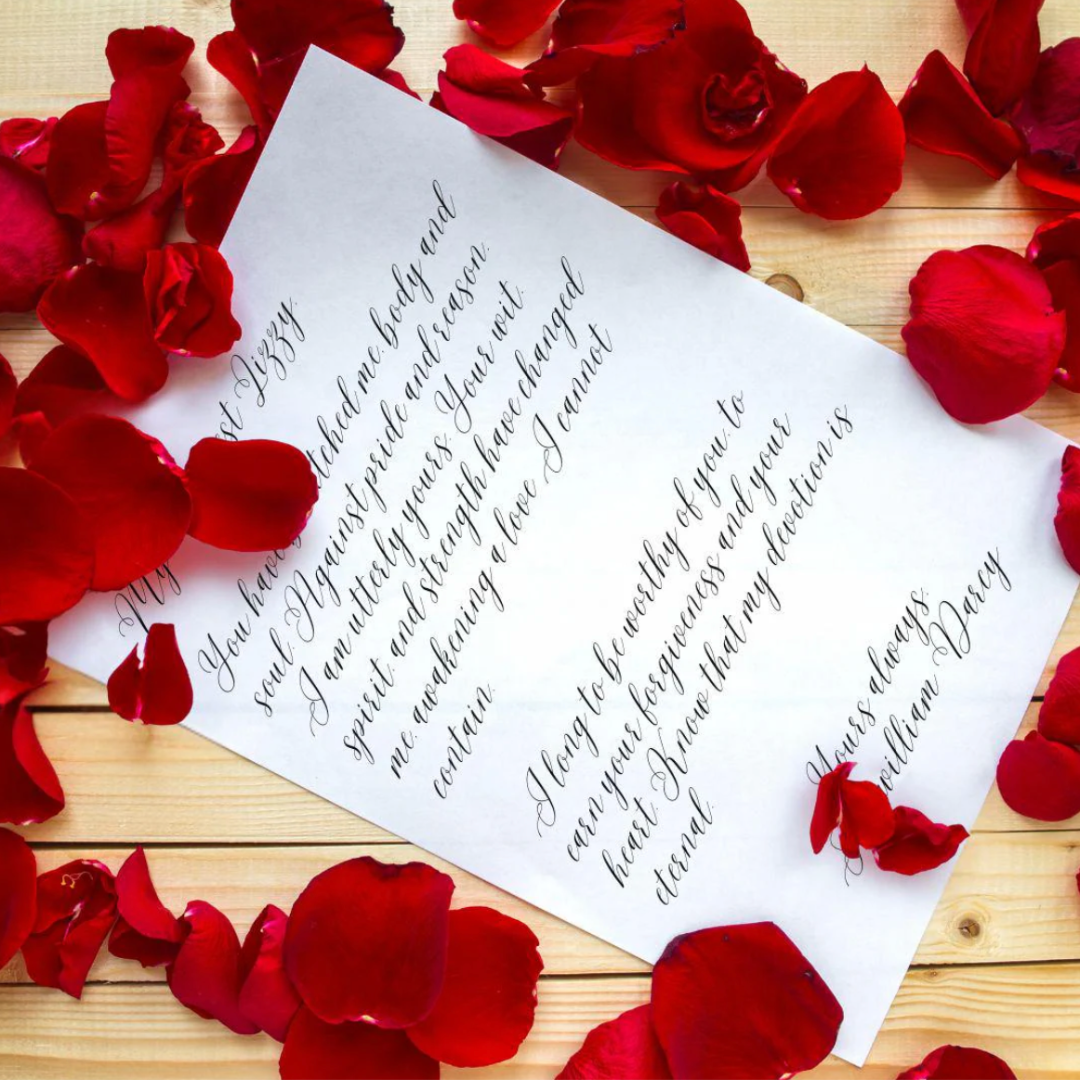 My est Lizzy,
You have tched me, body and
soul. Against pride and reason,
I am utterly yours. Your wit,
spirit, and strength have changed
me, awakening a love I cannot
contain.
I long to be worthy of you, to
earn your forgiveness and your
heart. Know that my devotion is
eternal.
Yours always,
william Darcy